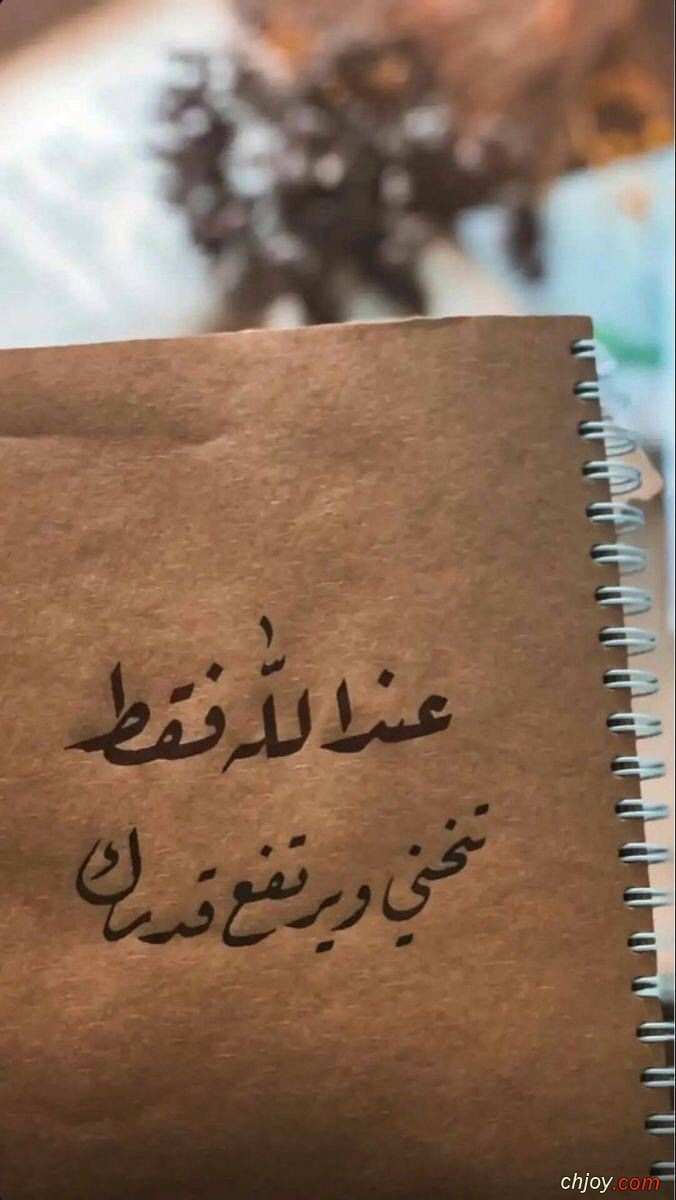 عند اللّٰه فقط
تنحني ويرتفع قدرك
chjoy.com